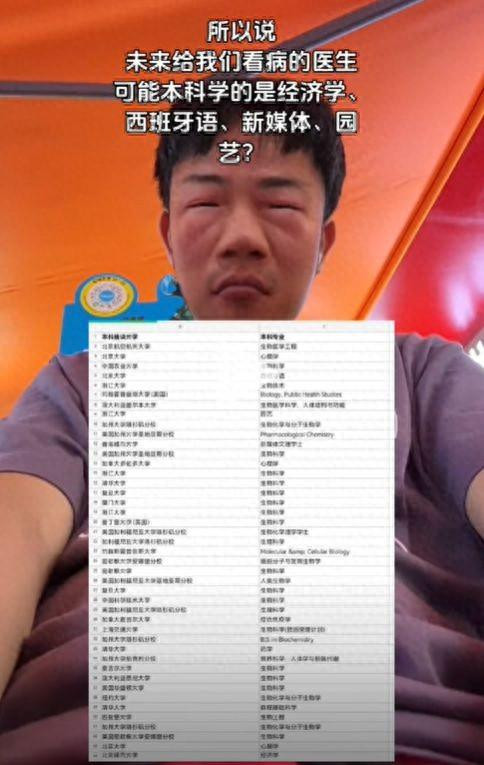 所以说
未来给我们看病的医生
可能本科学的是经济学、
西班牙语、新媒体、园
艺？
本科就读大学 本科专业
北京航空航天大学 生物医学工程
北京大学 心理学
中国农业大学
北京大学
浙江大学 生物技术
约翰霍普金斯大学(美国) Biology, Public Health Studies
澳大利亚墨尔本大学 生物医学科学、人体结构与功能
浙江大学 园艺
加州大学洛杉矶分校 生物化学与分子生物学
美国加州大学圣地亚哥分校 Pharmacological Chemistry
香港城市大学 新媒体文理学士
美国加州大学圣地亚哥分校 生物科学
加拿大多伦多大学 心理学
浙江大学 生物科学
清华大学 生物科学
复旦大学 生物科学
厦门大学 生物科学
浙江大学 生物科学
爱丁堡大学(英国) 生物科学
美国加利福尼亚大学洛杉矶分校 生物化学理学学士
加利福尼亚大学洛杉矶分校 生理科学
约翰斯霍普金斯大学 Molecular &amp; Cellular Biology
密歇根大学安娜堡分校 细胞分子与发育生物学
密歇根大学 生物科学
美国加利福尼亚大学圣地亚哥分校 人类生物学
复旦大学 生物科学
中国科学技术大学 生物科学
美国加利福尼亚大学洛杉矶分校 生理科学
加拿大麦吉尔大学
上海交通大学 生物科学(致远荣誉计划)
加州大学洛杉矶分校 B.S. in Biochemistry
清华大学 药学
加州大学伯克利分校 营养科学-人体学与新陈代谢
麦吉尔大学 生物科学
澳大利亚悉尼大学 生物科学
美国华盛顿大学 生物科学
纽约大学 生物化学与分子生物学
清华大学 数理基础科学
西安大学 生物工程
加州大学洛杉矶分校 生物化学与分子生物学
美国密歇根大学安娜堡分校 生物科学
北京大学 心理学
北京师范大学 经济学